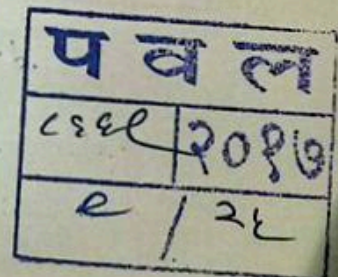 प व ल
८६६९ २०१७
९ / २६